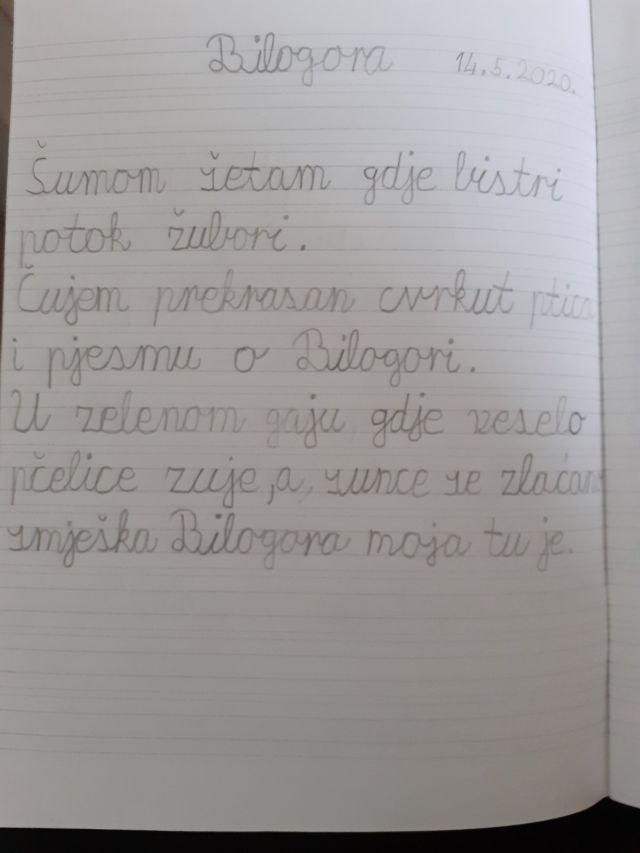 Bilogora 14.5.2020.
Šumom šetam gdje bistri
potok žubori.
Čujem prekrasan cvrkut ptica
i pjesmu o Bilogori.
U zelenom gaju gdje veselo
pčelice zuje, a sunce se zlaćano
smješka Bilogora moja tu je.